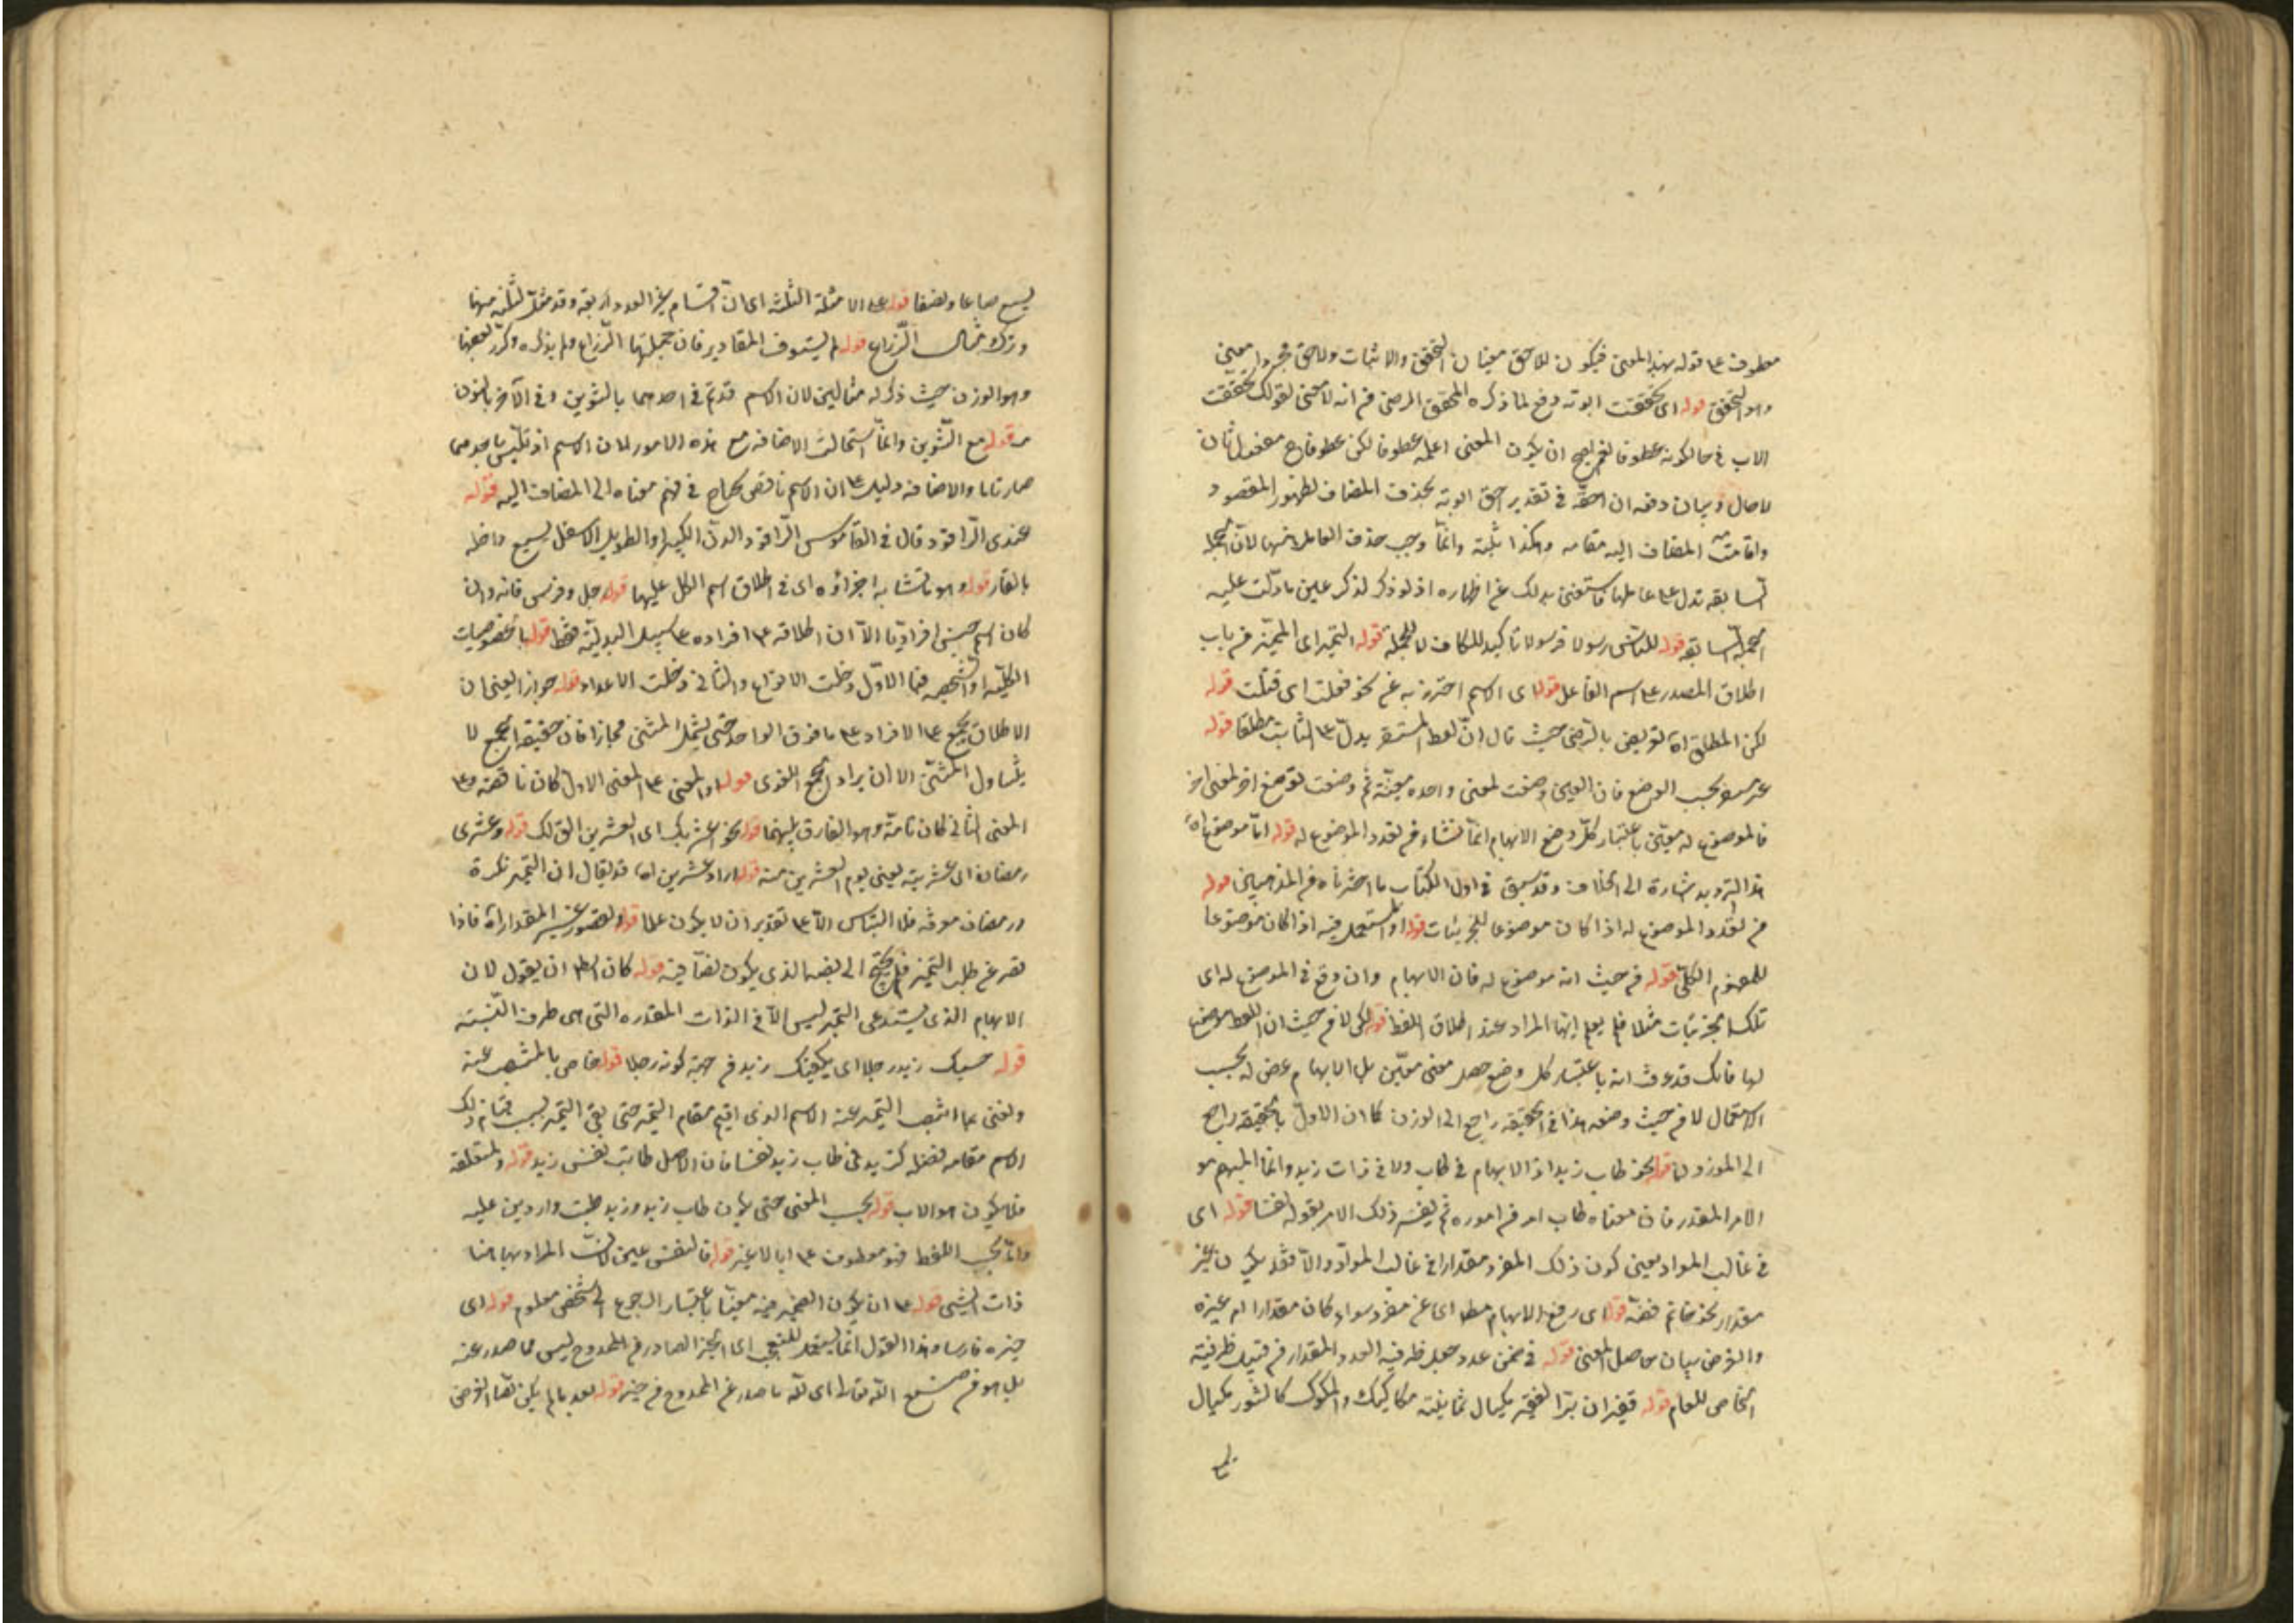 معطوف على قوله بهذا المعنى فيكون للاحق معنيان التحقق والاثبات ولاحق مجردا معنى
وهو التحقق قوله اى تحققت ابوته دفع لما ذكره المحقق الرضى من انه لا معنى لقولك تحققت
الاب فى حال كونه عطوفا نعم يصح ان يكون المعنى اعلمه عطوفا لكن عطوفا ح مفعول ثان
لا حال وبيان دفعه ان احقه فى تقدير احق ابوته بحذف المضاف لظهور المقصود
واقامة المضاف اليه مقامه وهكذا نثبته وانما وجب حذف العامل منها لان الجملة
السابقة تدل على عاملها فاستغنى بذلك عن اظهاره اذ لو ذكر لذكر عين ما دلت عليه
الجملة السابقة قوله للناس رسولا فرسولا تاكيد للكاف لا للجملة قوله التميز اى المميز من باب
اطلاق المصدر على اسم الفاعل قوله اى الاسم احترز به عن نحو فعلت اى قتلت قوله
لكن المطلق اه تعريض بالرضى حيث قال ان لفظ المستقر يدل على الثابت مطلقا قوله
بحسب الوضع فان العين وضعت لمعنى واحدة معينة ثم وضعت لوضع اخر لمعنى اخر
فالموضوع له معين باعتبار كل وضع الابهام انما نشاء من تعدد الموضوع له قوله اما موضوع اه
هذا الترديد اشارة الى الخلاف وقد سبق فى اول الكتاب ما اخترناه من المذهبين قوله
من تعدد الموضوع له اذا كان موضوعا للجزئيات قوله او المستعمل فيه اذا كان موضوعا
للمفهوم الكلى قوله من حيث انه موضوع له فان الابهام وان وقع فى الموضوع له اى
تلك الجزئيات مثلا فلم يعلم ايتها المراد عند اطلاق اللفظ قوله لكن لا من حيث ان اللفظ موضوع
لها فانك قد عرفت انه باعتبار كل وضع حصل معنى معين بل الابهام عرض له بحسب
الاستعمال لا من حيث وضعه هذا فى الحقيقة راجع الى الوزن كما ان الاول بالحقيقة راجع
الى الموزون قوله نحو طاب زيد اذ لا ابهام فى طاب ولا فى ذات زيد وانما المبهم هو
الامر المقدر فان معناه طاب امر من اموره ثم يفسر ذلك الامر بقوله نفسا قوله اى
فى غالب المواد يعنى كون ذلك المفرد مقدارا فى غالب المواد والا فقد يكون غير
مقدار نحو خاتم فضة قوله اى رفع الابهام مطلقا اى عن مفرد سواء كان مقدارا ام غيره
والغرض بيان حاصل المعنى قوله فى ضمن عدد جعل ظرفيه العدد المقدار من قبيل ظرفية
الخاص للعام قوله قفيزان برا القفيز مكيال ثمانية مكاكيك والمكوك كالتنور مكيال
يسع
يسع صاعا ونصفا قوله على الامثلة الثلثة اى ان اقسام غير العدد اربعة وقد مثل لثلثة منها
وترك مثال الذراع قوله لم يستوف المقادير فان جملتها الذراع ولم يذكره وكرر بعضها
وهو الوزن حيث ذكر له مثالين لان الاسم قد تم فى احدهما بالتنوين وفى الآخر بالنون
قوله مع التنوين وانما استحالت الاضافة مع هذه الامور لان الاسم اذ تلبس باحدهما
صار تاما والاضافة دليل على ان الاسم ناقص محتاج فى فهم معناه الى المضاف اليه قوله
عندى الراقود قال فى القاموس الراقود الدن الكبير او الطويل الاسفل يسيع داخله
بالقار قوله وهو ما تشابه اجزاؤه اى فى اطلاق اسم الكل عليها قوله رجل وفرس فانه وان
كان اسم جنس افراديا الا ان اطلاقه على افراده على سبيل البدلية فقط قوله بالخصوصيات
الكلية او الشخصية فما الاول دخلت الانواع والثانى دخلت الاعداد قوله جوازا يعنى ان
الاطلاق الجمع على الافراد على ما فوق الواحد حتى يشمل المثنى مجازا فان حقيقة الجمع لا
يتناول المثنى الا ان يراد الجمع اللغوى قوله او المعنى على المعنى الاول كان ناقصة وعلى
المعنى الثانى كان تامة وهو الفارق بينهما قوله نحو عشريك اى العشرين التى لك قوله وعشرى
رمضان اى عشريته يعنى يوم العشرين منه قوله اراد عشرين اه قد يقال ان التميز نكرة
ورمضان معرفة فلا التباس الا على تقدير ان لا يكون علما قوله ولقصور غير المقدار اه فاذا
قصر عن طلب التميز فلم يحتج الى نصبه الذى يكون نصا فيه قوله كان الظ ان يقول لان
الابهام الذى يستدعى التميز ليس الا فى الذات المقدرة التى هى طرف النسبة
قوله حسبك زيد رجلا اى يكفيك زيد من جهة كونه رجلا قوله خاص بالمنتصب عنه
ونعنى بما انتصب التميز عنه الاسم الذى اقيم مقام التميز حتى بقى التميز بسبب قيام ذلك
الاسم مقامه فضلة كزيد فى طاب زيد نفسا فان الاصل طابت نفس زيد قوله ولمتعلقه
فلا يكون هو الاب قوله بحسب المعنى حتى يكون طاب زيد وزيد طيب واردين عليه
واما بحسب اللفظ فهو معطوف على ابا لا غير قوله فالنفس عين لان المراد بها هنا
ذات الشئ قوله على ان يكون الضمير فيه معينا باعتبار الرجوع الى شخص معلوم قوله اى
خيره فارسا وهذا القول انما يستعمل للتعجب اى الخير الصادر من الممدوح ليس مما صدر عنه
بل هو من صنع الله تعالى اى لله ما صدر عن الممدوح من خير قوله بعد ما لم يكن نصا الغرض